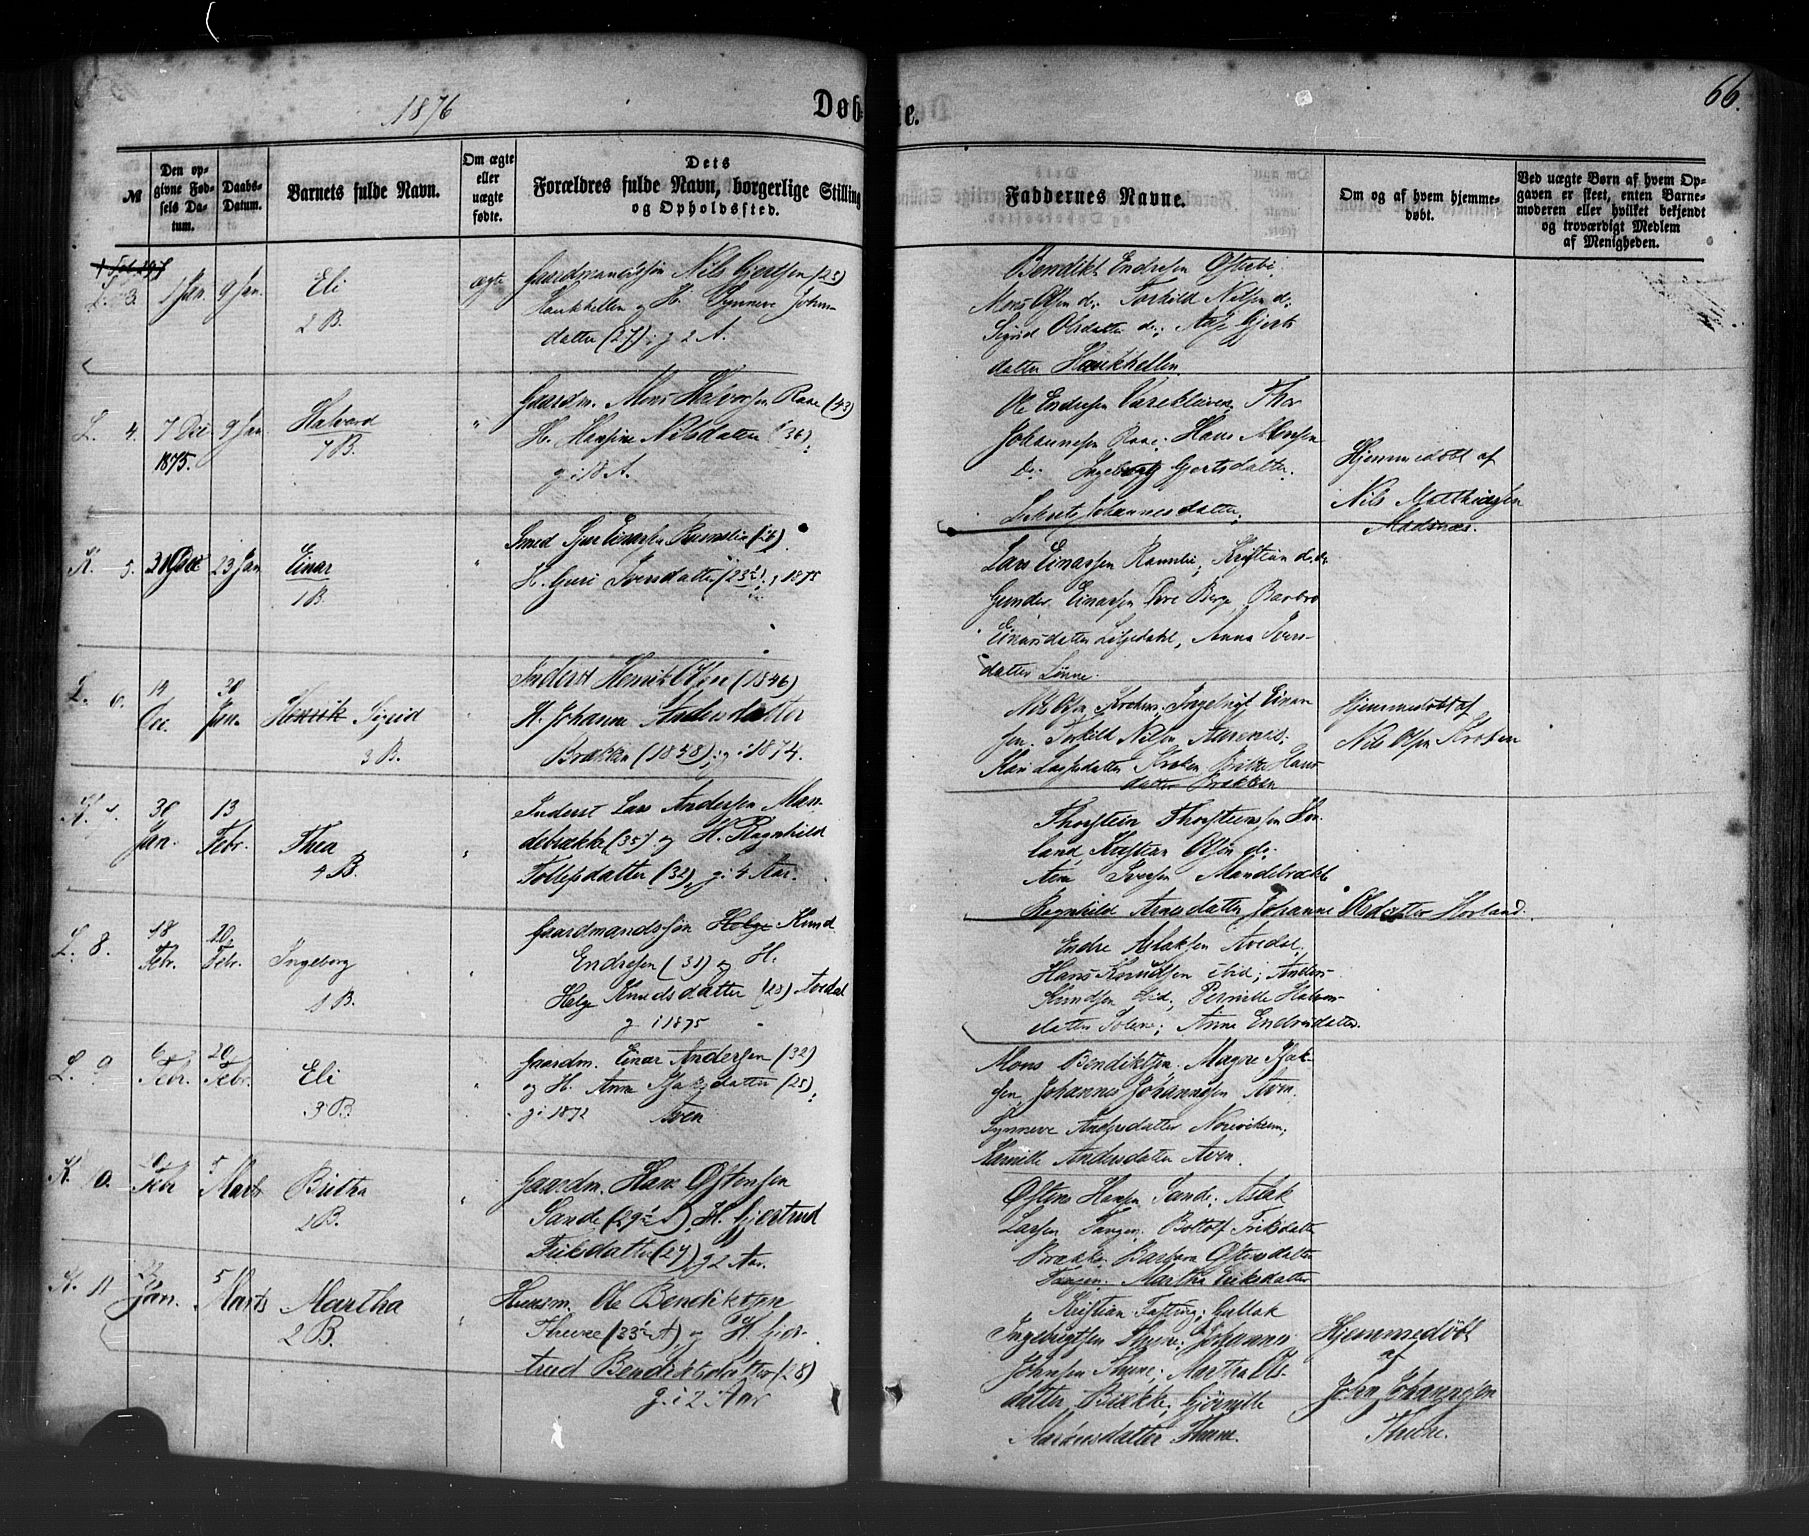 1876
Døb- ne.
66.
№
Den opgivne Fødsels Datum.
Daabs-Datum.
Barnets fulde Navn.
Om ægte eller uægte fødte.
Dets Forældres fulde Navn, borgerlige Stilling og Opholdssted.
Faddernes Navne.
Om og af hvem hjemmedøbt.
Ved uægte Børn af hvem Opgaven er skeet, enten Barnemoderen eller hvilket bekjendt og troværdigt Medlem af Menigheden.
L. 3 1 Jan. 9 Jan. Eli ægte Gaardmandssøn Nils Gjertsen (25)
2 B. Haukhellen og H. Synneve Johns
datter (27) g 2 A.
Bendikt Endresen Østebø
Mons Olsen do. Torkild Nilsen do.
Sigrid Olsdatter do; Gjerts
datter Haukhellen
L. 4. 7 Dec 9 Jan Halvard " Gaardm. Mons Halvorsen Raae (43)
1875. 7 B. H. Hansine Nilsdatter (36)
g i 18 A.
Ole Endresen Thor
Johannesen Raae; Hans Monsen
do. Ingeborg Gjertsdatter
Johannesdatter
Hjemmedøbt af
Nils Matthiasen
K. 5. 31 Dec 23 Jan Einar " Smed Einarsen (26)
1 B. H. Guri Iversdatter (23½) g 1875
Lars Einarsen Kristian do. do.
Gunder Einarsen Berge Barbro
Einarsdatter Anna Ivers-
datter Lønne.
L. 6. 14 Dec. 30 Jan. Henrik Sigrid Inderst Henrik Olsen (1846)
H. Johanne Andersdatter
3 B. Brækkan (1838) g i 1874.
Nils Olsen Kroken, Ingebrigt Einar
sen Torkild Nilsen
Kari Kroken, Britha Hans
datter Brækken
Hjemmedøbt af
Nils Olsen Kroken
K. 7. 30 Jan. 13 Febr. Thea Inderst Lars Andersen Man-
debrække (35½) og H. Ragnhild
4 B. Tollefsdatter (32) g i 4 Aar.
Thorstein Thorsteinsen Hov-
land, Kristian Olsen do.
Arne Iversen Mandebrække
Ragnhild Arnesdatter Johanne Olsdatter Hovland.
L. 8. 18 Febr. 20 Febr. Ingeborg Gaardmandssøn Helge Knud
Endresen (31) og H.
1 B. Helge Knudsdatter (23) Avedal
g i 1875
Endre Aslaksen Avedal,
Hans Knudsen ibid; Anders
Knudsen ibid, Pernille
datter Anna Endresdatter.
L. 9 6 Febr. 20 Febr. Eli Gaardm. Einar Andersen (32)
og H. Anna Isaksdatter (25),
3 B. g i 1872 Aven
Mons Bendiktsen, Magne Isak-
sen, Johannes Johannesen Aven.
Synneve Andersdatter
Andersdatter Aven.
K. 10. Febr 5 Marts Britha Gaardm. Hans Østensen
2 B. Sande (29½ A), H. Gjertrud
Eriksdatter (27) g 2 Aar.
Østen Hansen Sande, Aslak
Larsen Tangen, Eriksdatter
Brække, Barbara Østensdatter
Tangen. Martha Eriksdatter
K. 11 Jan. 5 Marts Martha Husm. Ole Bendiktsen
2 B. Thune (33½ A) og H. Gjer-
trud Bendiktsdatter (28)
g. i 2 Aar
Kristian Gullak
Ingebrigtsen Thune; Johannes
Johnsen Thune, Martha Ols-
datter Brække,
datter Thune.
Hjemmedøbt
af
John Johannesen
Thune.